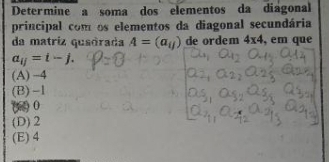 Determine a soma dos elementos da diagonal
principal com os elementos da diagonal secundária
da matriz quadrada A = (aᵢⱼ) de ordem 4x4, em que
aᵢⱼ = i − j. P=0
a₁₁ a₁₂ a₁₃ a₁₄
(A) −4 a₂₁ a₂₂ a₂₃ a₂₄
(B) −1 a₃₁ a₃₂ a₃₃ a₃₄
0 a₄₁ a₄₂ a₄₃ a₄₄
(D) 2
(E) 4